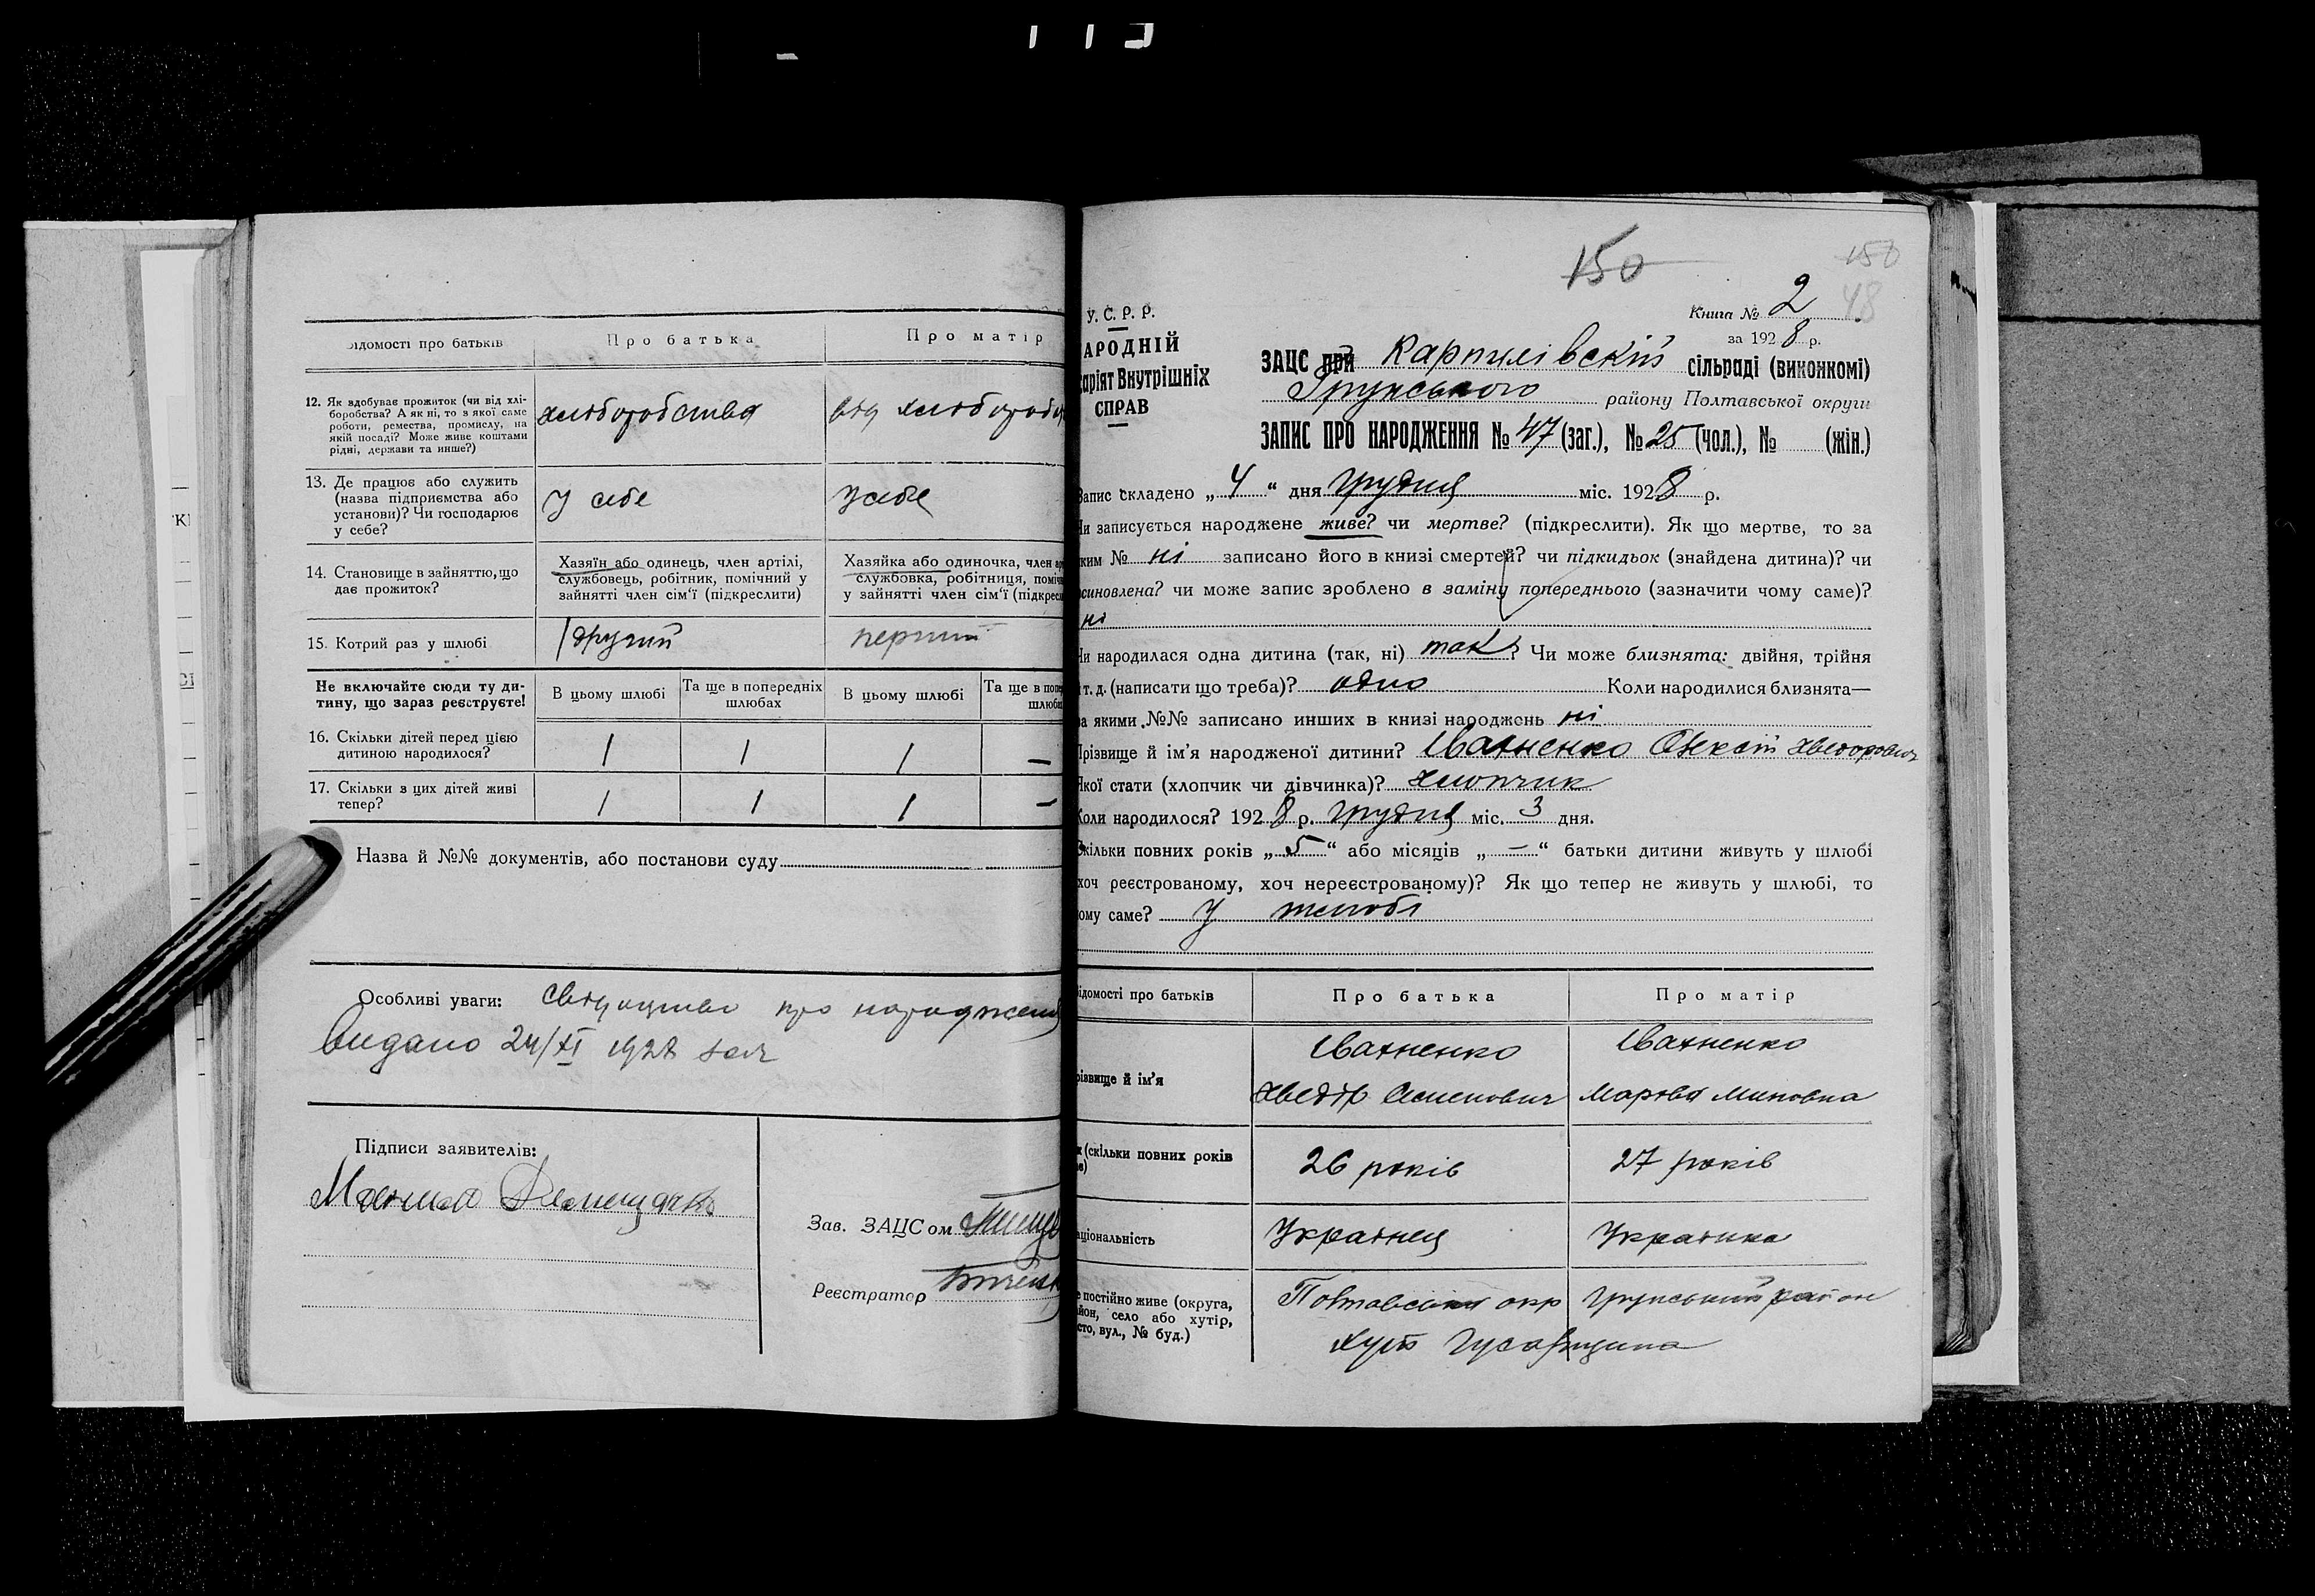 Відомості про батьків
Про батька
Про матір
12. Як здобуває прожиток (чи від хлі-
боробства? А як ні, то з якої саме
роботи, ремества, промислу, на
якій посаді? Може живе коштами
рідні, держави та инше?)
хліборобства
від хлібороб
13. Де працює або служить
(назва підприємства або
установи)? Чи господарює
у себе?
у себе
у себе
14. Становище в зайняттю, що
дає прожиток?
Хазяїн або одинець, член артілі,
службовець, робітник, помічний у
зайнятті член сім'ї (підкреслити)
Хазяйка або одиночка, член ар
службовка, робітниця, поміч
у зайнятті член сім'ї (підкресл
15. Котрий раз у шлюбі
другий
перший
Не включайте сюди ту ди-
тину, що зараз реєструєте!
В цьому шлюбі
Та ще в попередніх
шлюбах
В цьому шлюбі
Та ще в попе
шлюбах
16. Скільки дітей перед цією
дитиною народилося?
1 1 1 —
17. Скільки з цих дітей живі
тепер?
1 1 1 —
Назва й №№ документів, або постанови суду
Особливі уваги: про народження
видано 24/XI 1928
Підписи заявителів:
Зав. ЗАЦСом
Реєстратор
150
150
48
У. С. Р. Р.
АРОДНІЙ
аріят Внутрішніх
СПРАВ
Книга № 2
за 1928 р.
ЗАЦС при Карпилівскій сільраді (виконкомі)
Грунського району Полтавської округи
ЗАПИС ПРО НАРОДЖЕННЯ № 47 (заг.), № 25 (чол.), № (жін.)
Запис складено „4" дня грудня міс. 1928 р.
Чи записується народжене живе? чи мертве? (підкреслити). Як що мертве, то за
яким № ні записано його в книзі смертей? чи підкидьок (знайдена дитина)? чи
синовлена? чи може запис зроблено в заміну попереднього (зазначити чому саме)?
ні
Чи народилася одна дитина (так, ні) так? Чи може близнята: двійня, трійня
і т. д. (написати що треба)? одно Коли народилися близнята—
за якими №№ записано инших в книзі народжень ні
Прізвище й ім'я народженої дитини? Івахненко Олексій Хведорович
Якої стати (хлопчик чи дівчинка)? хлопчик
Коли народилося? 1928 р. грудня міс. 3 дня.
Скільки повних років „5" або місяців „—" батьки дитини живуть у шлюбі
хоч реєстрованому, хоч нереєстрованому)? Як що тепер не живуть у шлюбі, то
ому саме? У шлюбі
ідомості про батьків
Про батька
Про матір
різвище й ім'я
Івахненко
Хведір Семенович
Івахненко
Марфа Миновна
к (скільки повних років
ів)
26 років
27 років
аціональність
Українец
Українка
е постійно живе (округа,
йон, село або хутір,
сто, вул., № буд.)
Полтавської окр Грунський район
хут Гусарщина